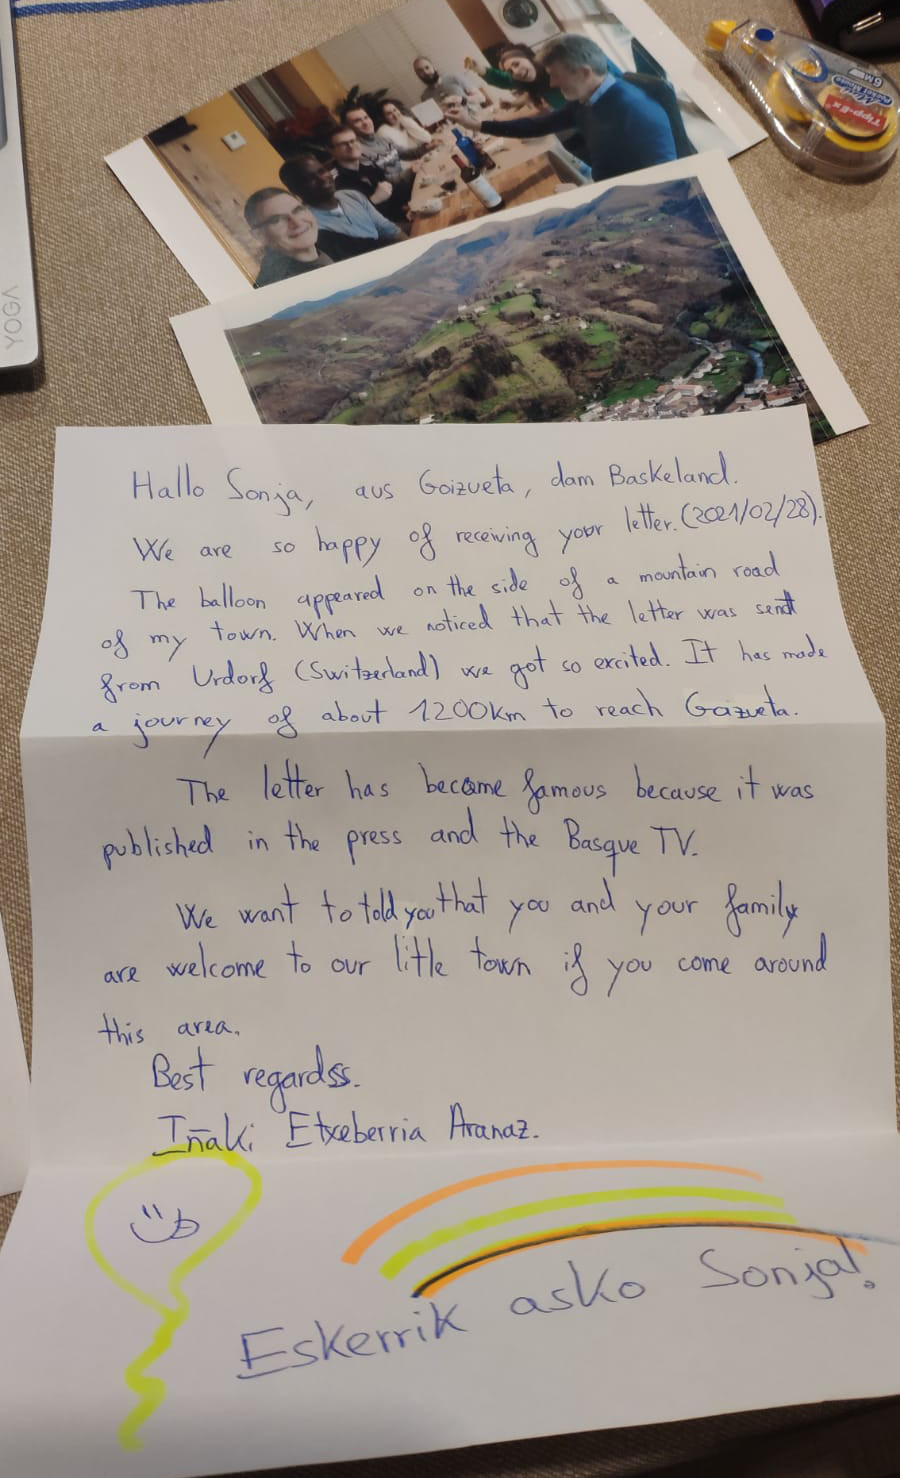 YOGA
Tipp-Ex
6M
Hallo Sonja, aus Goizueta, dam Baskeland.
We are so happy of receiving your letter. (2021/02/28).
The balloon appeared on the side of a mountain road
of my town. When we noticed that the letter was sent
from Urdorf (Switzerland) we got so excited. It has made
a journey of about 1200km to reach Goizueta.
The letter has become famous because it was
published in the press and the Basque TV.
We want to told you that you and your family
are welcome to our little town if you come around
this area.
Best regardss.
Iñaki Etxeberria Aranaz.
Eskerrik asko Sonja!